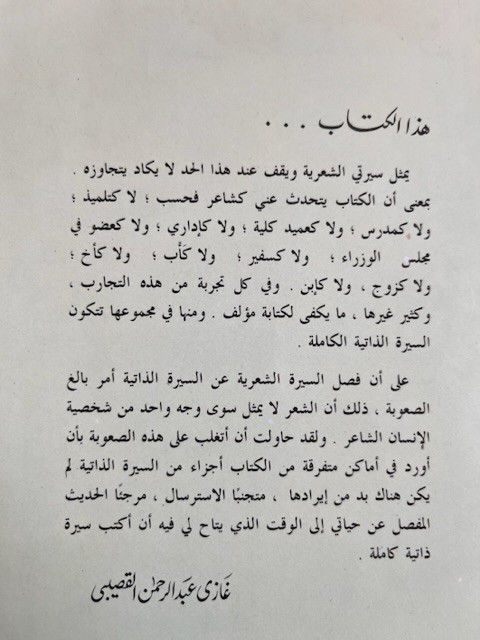 هذا الكتاب . . .
يمثل سيرتي الشعرية ويقف عند هذا الحد لا يكاد يتجاوزه .
بمعنى أن الكتاب يتحدث عني كشاعر فحسب ؛ لا كتلميذ ؛
ولا كمدرس ؛ ولا كعميد كلية ؛ ولا كإداري ؛ ولا كعضو في
مجلس الوزراء ؛ ولا كسفير ؛ ولا كأب ؛ ولا كأخ ؛
ولا كزوج ، ولا كإبن . وفي كل تجربة من هذه التجارب ،
وكثير غيرها ، ما يكفى لكتابة مؤلف . ومنها في مجموعها تتكون
السيرة الذاتية الكاملة .
على أن فصل السيرة الشعرية عن السيرة الذاتية أمر بالغ
الصعوبة ، ذلك أن الشعر لا يمثل سوى وجه واحد من شخصية
الإنسان الشاعر . ولقد حاولت أن أتغلب على هذه الصعوبة بأن
أورد في أماكن متفرقة من الكتاب أجزاء من السيرة الذاتية لم
يكن هناك بد من إيرادها ، متجنبًا الاسترسال ، مرجئًا الحديث
المفصل عن حياتي إلى الوقت الذي يتاح لي فيه أن أكتب سيرة
ذاتية كاملة .
غازي عبد الرحمن القصيبي